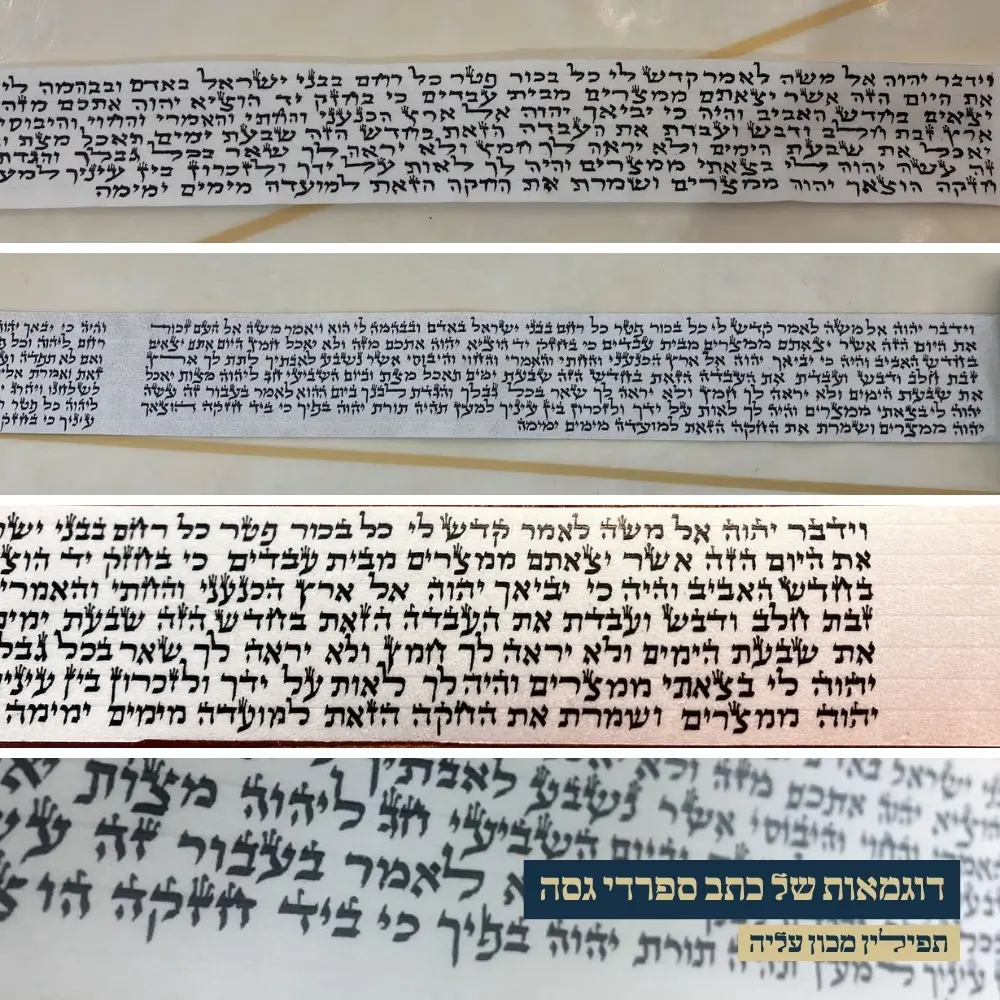 וידבר יהוה אל משה לאמר קדש לי כל בכור פטר כל רחם בבני ישראל באדם ובבהמה לי
את היום הזה אשר יצאתם ממצרים מבית עבדים כי בחזק יד הוציא יהוה אתכם מזה
יצאים בחדש האביב והיה כי יביאך יהוה אל ארץ הכנעני והחתי והאמרי והחוי והיבוסי
ארץ זבת חלב ודבש ועבדת את העבדה הזאת בחדש הזה שבעת ימים תאכל מצת
יאכל את שבעת הימים ולא יראה לך חמץ ולא יראה לך שאר בכל גבלך והגדת
זה עשה יהוה לי בצאתי ממצרים והיה לך לאות על ידך ולזכרון בין עיניך למע
חזקה הוצאך יהוה ממצרים ושמרת את החקה הזאת למועדה מימים ימימה
וידבר יהוה אל משה לאמר קדש לי כל בכור פטר כל רחם בבני ישראל באדם ובבהמה לי הוא ויאמר משה אל העם זכור
את היום הזה אשר יצאתם ממצרים מבית עבדים כי בחזק יד הוציא יהוה אתכם מזה ולא יאכל חמץ היום אתם יצאים
בחדש האביב והיה כי יביאך יהוה אל ארץ הכנעני והחתי והאמרי והחוי והיבוסי אשר נשבע לאבתיך לתת לך ארץ
זבת חלב ודבש ועבדת את העבדה הזאת בחדש הזה שבעת ימים תאכל מצת וביום השביעי חג ליהוה מצות יאכל
את שבעת הימים ולא יראה לך חמץ ולא יראה לך שאר בכל גבלך והגדת לבנך ביום ההוא לאמר בעבור זה עשה
יהוה לי בצאתי ממצרים והיה לך לאות על ידך ולזכרון בין עיניך למען תהיה תורת יהוה בפיך כי ביד חזקה הוצאך
יהוה ממצרים ושמרת את החקה הזאת למועדה מימים ימימה
והיה כי יבאך יהוה
רחם ליהוה וכל
ואם לא תפדה
זאת ואמרת אליו
לשלחנו ויהרג
ליהוה כל פטר
עיניך כי בחזק
וידבר יהוה אל משה לאמר קדש לי כל בכור פטר כל רחם בבני יש
את היום הזה אשר יצאתם ממצרים מבית עבדים כי בחזק יד הוצ
בחדש האביב והיה כי יביאך יהוה אל ארץ הכנעני והחתי והאמרי
זבת חלב ודבש ועבדת את העבדה הזאת בחדש הזה שבעת ימי
את שבעת הימים ולא יראה לך חמץ ולא יראה לך שאר בכל גבל
יהוה לי בצאתי ממצרים והיה לך לאות על ידך ולזכרון בין עיני
יהוה ממצרים ושמרת את החקה הזאת למועדה מימים ימימה
ישראל
הוציא יהוה אתכם מזה ולא
והחוי והיבוסי אשר נשבע לאבתיך
וביום השביעי חג ליהוה מצות
לאמר בעבור זה עש
עיניך למען תהיה תורת יהוה בפיך כי ביד חזקה הוצ
דוגמאות של כתב ספרדי גסה
תפילין מכון עליה